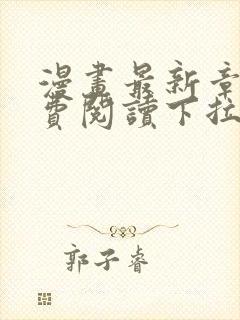 漫畫最新章
費閱讀下拉
郭子睿